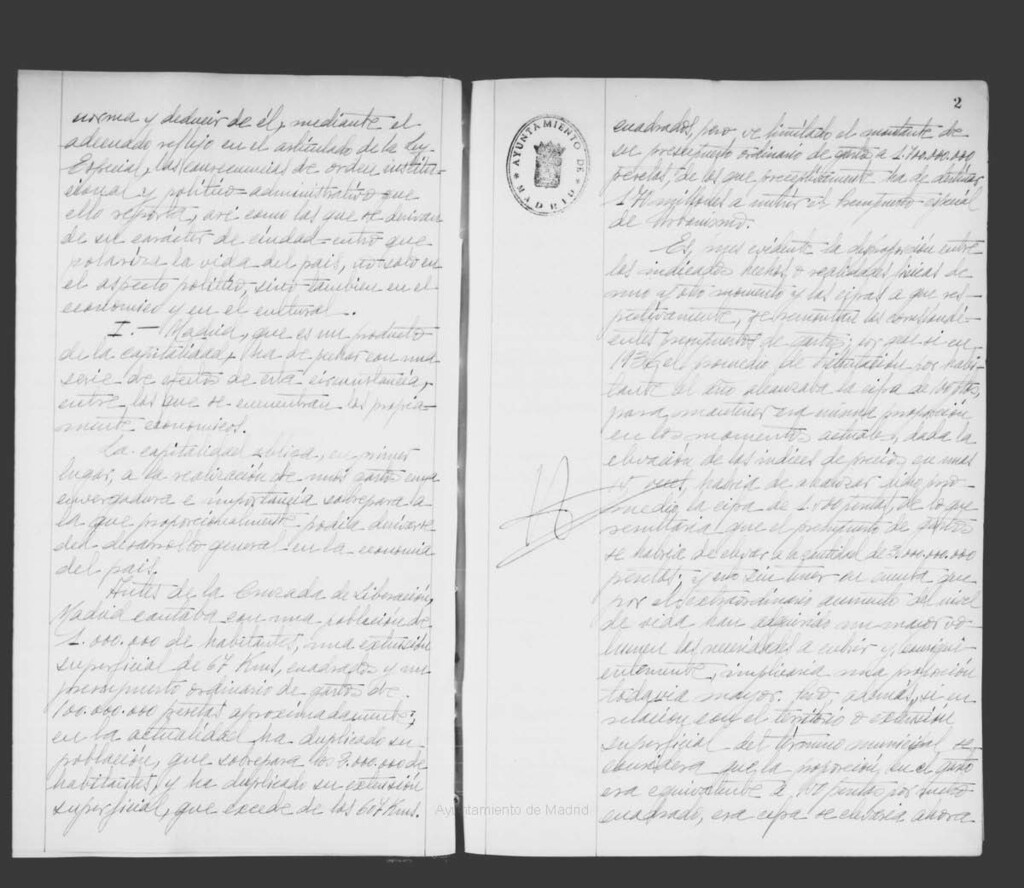 norma y deducir de él, mediante el
adecuado reflejo en el articulado de la Ley
Especial, las consecuencias de orden institu-
cional y político-administrativo que
ello reporta, así como las que se derivan
de su carácter de ciudad-centro que
polariza la vida del país, no solo en
el aspecto político, sino tambien en el
económico y en el cultural.
I.- Madrid, que es un producto
de la capitalidad, ha de pechar con una
serie de efectos de esta circunstancia,
entre los que se encuentran los propia-
mente económicos.
La capitalidad obliga, en primer
lugar, a la realización de unos gastos cuya
envergadura e importancia sobrepasa a
la que proporcionalmente podía derivarse
del desarrollo general en la economía
del país.
Antes de la Cruzada de Liberación,
Madrid contaba con una población de
1.000.000 de habitantes, una extensión
superficial de 67 Kms. cuadrados y un
presupuesto ordinario de gastos de
100.000.000 pesetas aproximadamente;
en la actualidad ha duplicado su
población, que sobrepasa los 2.000.000 de
habitantes, y ha duplicado su extensión
superficial, que excede de los 607 Kms.
AYUNTAMIENTO DE MADRID
2
cuadrados, pero ve limitado el montante de
su presupuesto ordinario de gastos a 1.700.000.000
pesetas, de los que precisamente ha de
millones a nutrir el Presupuesto especial
de Urbanismo.
Es, pues, evidente la desproporción entre
los indicados hechos o realidades físicas de
uno y otro momento y las cifras a que res-
pectivamente, se remontan los correspondi-
entes presupuestos de gastos; por que si en
1936, el promedio de tributación por habi-
tante al año alcanzaba la cifra de 100 ptas,
para mantener esa misma proporción
en los momentos actuales, dada la
elevación de los índices de precios en unas
15 veces, habría de alcanzar dicho pro-
medio la cifra de 1.500 pesetas, de lo que
resultaría que el presupuesto de gastos
se habría de elevar a la cantidad de 3.000.000.000
pesetas; y eso sin tener en cuenta que
por el extraordinario aumento del nivel
de vida han adquirido un mayor vo-
lumen las necesidades a cubrir y, consigui-
entemente, implicaría una proporción
todavía mayor. Pero, además, si en
relación con el territorio o extensión
superficial del término municipal se
considera que la proporción en el gasto
era equivalente a pesetas por metro
cuadrado, esa cifra se elevaría ahora
Ayuntamiento de Madrid